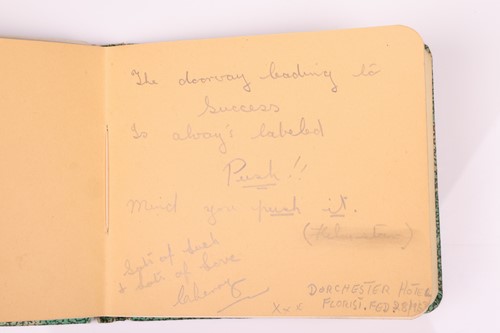 The doorway leading to
Success
Is alway's labeled
Push!!
Mind you push it.
Lots of luck
& lots of love
xxx
DORCHESTER HOTEL
FLORIST. FEB.